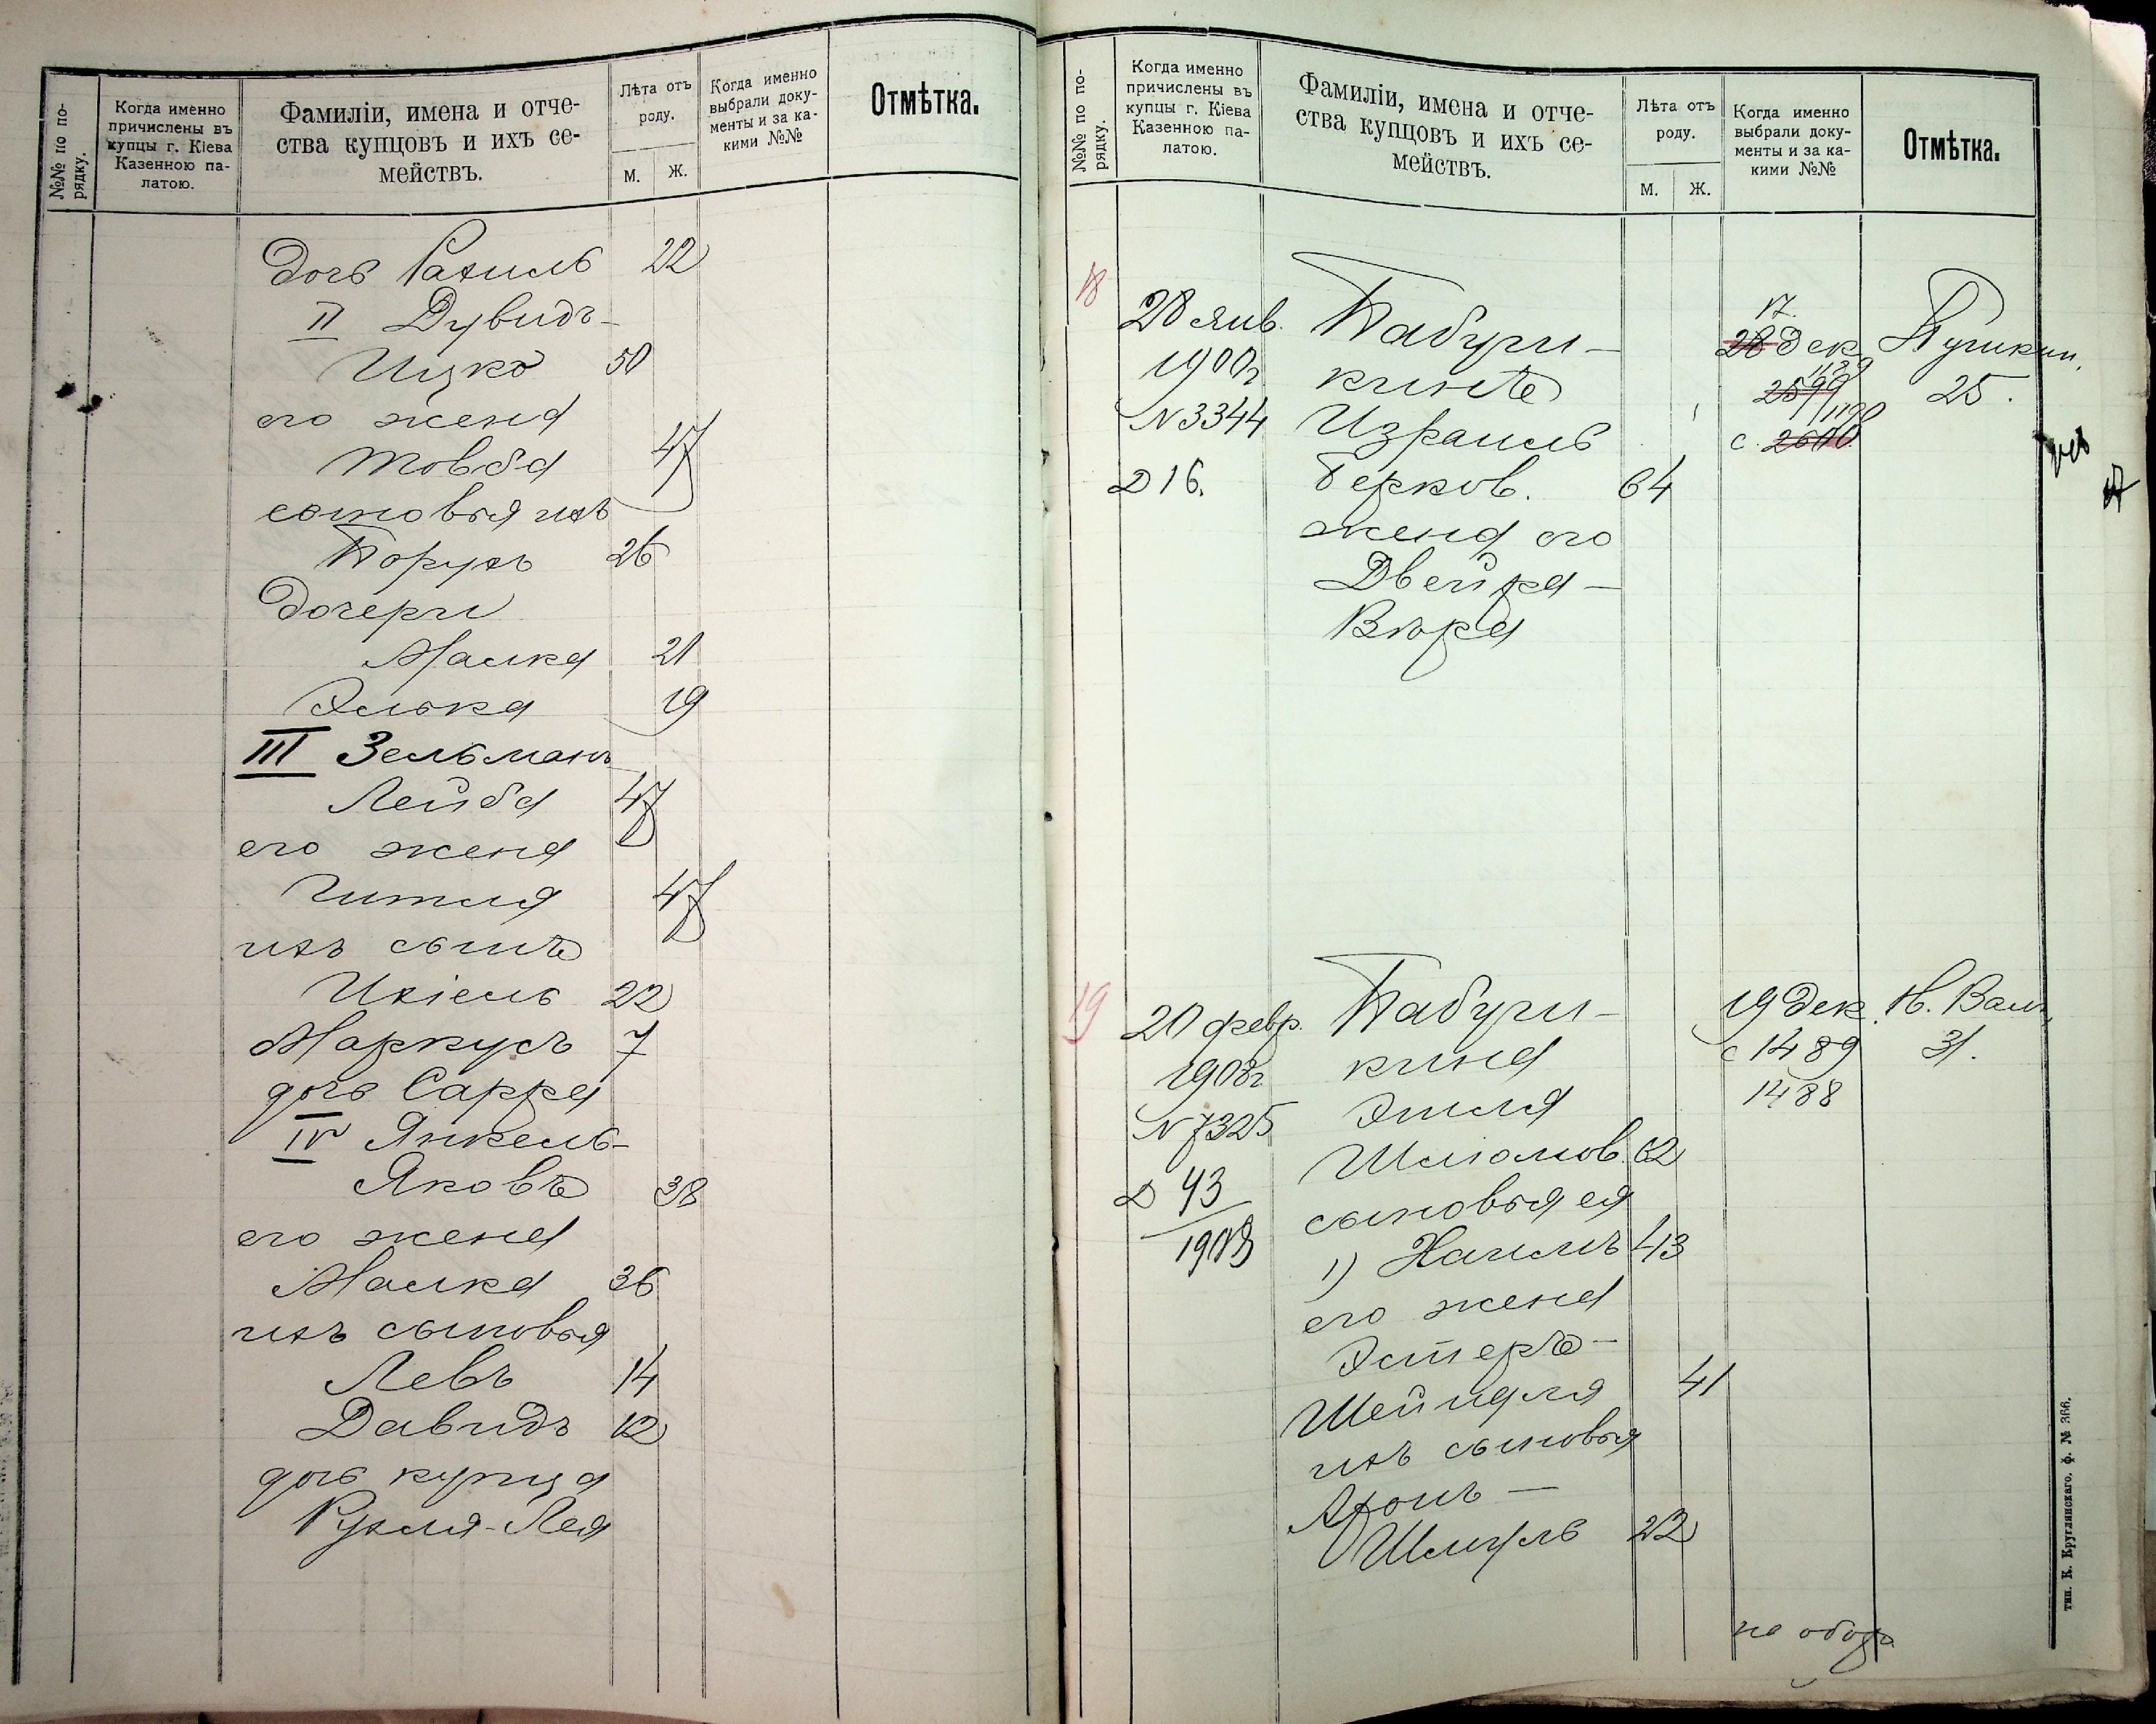 №№ по по-
рядку.
Когда именно
причислены въ
купцы г. Кіева
Казенною па-
латою.
Фамиліи, имена и отче-
ства купцовъ и ихъ се-
мействъ.
Лѣта отъ
роду.
м.
ж.
Когда именно
выбрали доку-
менты и за ка-
кими №№
Отмѣтка.
дочь Рахиль 22
II Дувидъ-
Ицко 50
его жена
Товба 47
сыновья ихъ
Борухъ 26
дочери
Малка 21
Элька 19
III Зельманъ
Лейба 47
его жена
Гитля 47
ихъ сынъ
Ихіель 22
Маркусъ 7
дочь Сарра
IV Янкель-
Яковъ 38
его жена
Малка 36
ихъ сыновья
Левъ 14
Давидъ 12
дочь купца
Рухля-Лея
№№ по по-
рядку.
Когда именно
причислены въ
купцы г. Кіева
Казенною па-
латою.
Фамиліи, имена и отче-
ства купцовъ и ихъ се-
мействъ.
Лѣта отъ
роду.
м.
ж.
Когда именно
выбрали доку-
менты и за ка-
кими №№
Отмѣтка.
18
28 янв.
1900г
№3344
Д 16.
Бабуш-
кинъ
Израиль
Берков. 64
жена его
Двейра-
Вѣра
17.
28 дек
2599
1190
с. 2600
Пушкин.
25.
19
20 февр.
1903г
№7325
Д 43
1903
Бабуш-
кина
Этля
Шліомов. 62
сыновья ея
1) Хаимъ 43
его жена
Эстеръ-
Шейндля 41
ихъ сыновья
Аронъ -
Шмуль 22
19 дек.
с 1489
1488
Н. Вал.
31.
на обор.
тип. К. Круглянскаго. ф. № 366.